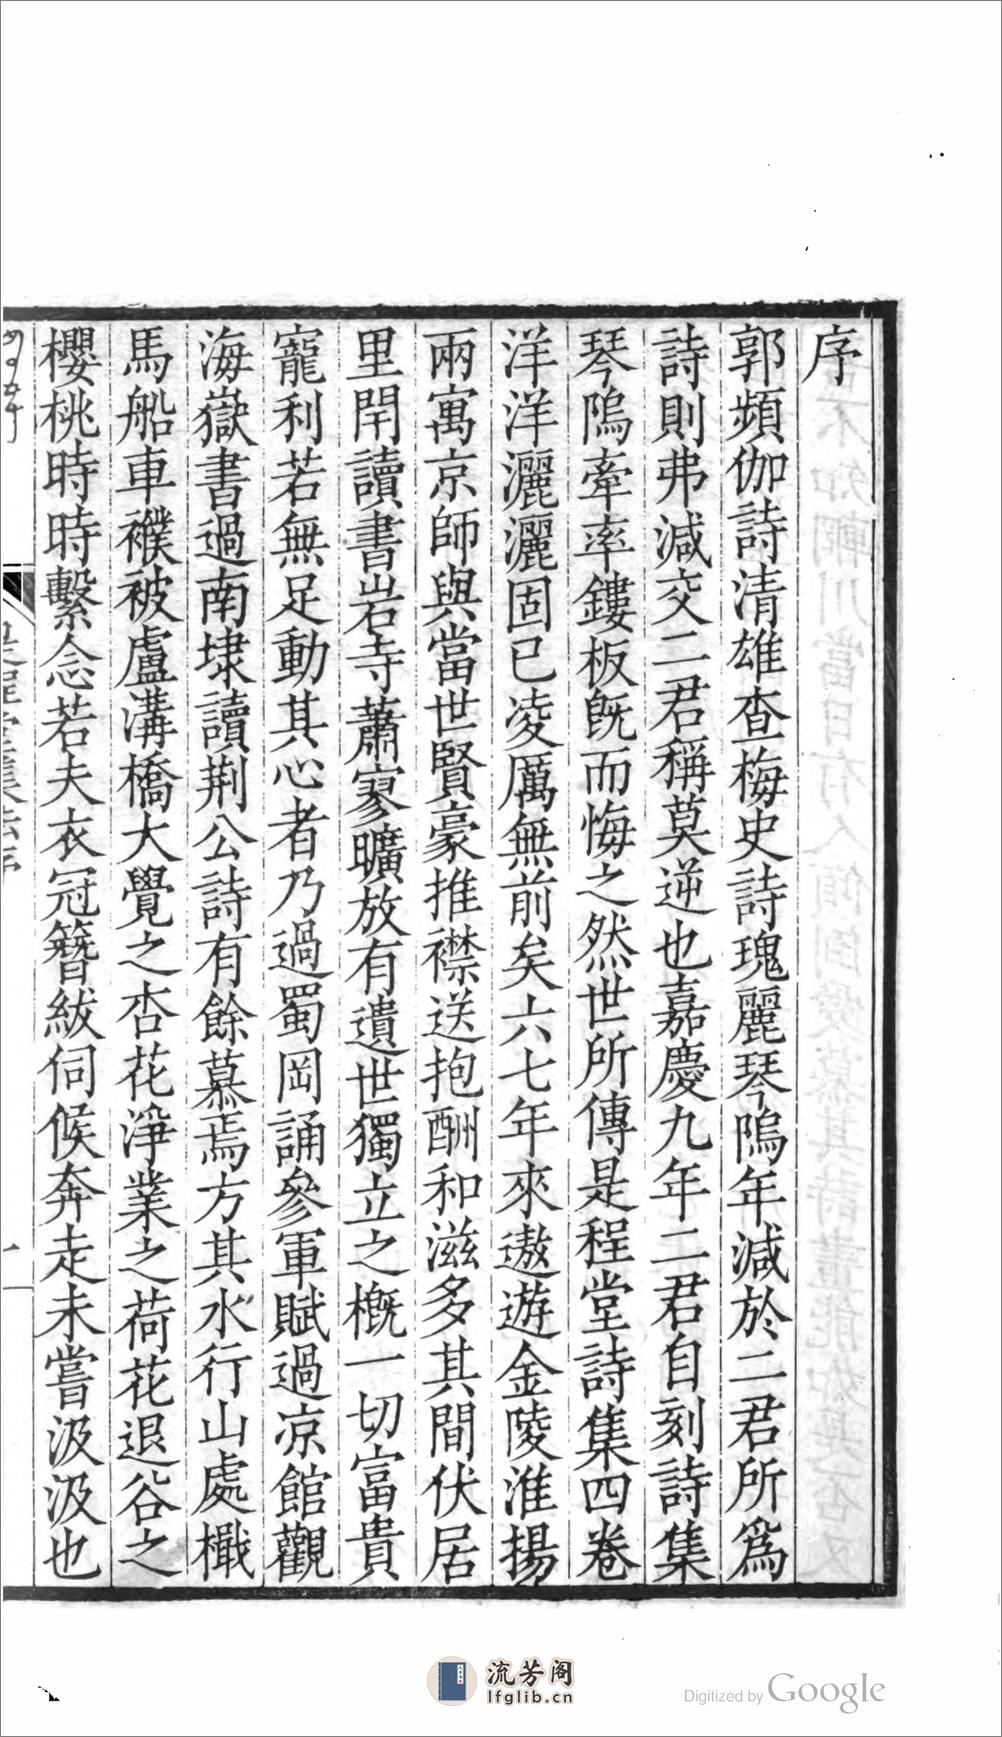 序
郭頻伽詩清雄查梅史詩瑰麗琴隖年減於二君所爲
詩則弗減交二君稱莫逆也嘉慶九年二君自刻詩集
琴隖牽率鏤板旣而悔之然世所傳是程堂詩集四卷
洋洋灑灑固已凌厲無前矣六七年來遨遊金陵淮揚
兩寓京師與當世賢豪推襟送抱酬和滋多其間伏居
里閈讀書岩寺蕭寥曠放有遺世獨立之槪一切富貴
寵利若無足動其心者乃過蜀岡誦參軍賦過凉館觀
海嶽書過南埭讀荆公詩有餘慕焉方其水行山處檝
馬船車襆被盧溝橋大覺之杏花淨業之荷花退谷之
櫻桃時時繫念若夫衣冠簪紱伺候奔走未嘗汲汲也
一
流芳阁
lfglib.cn
Digitized by Google